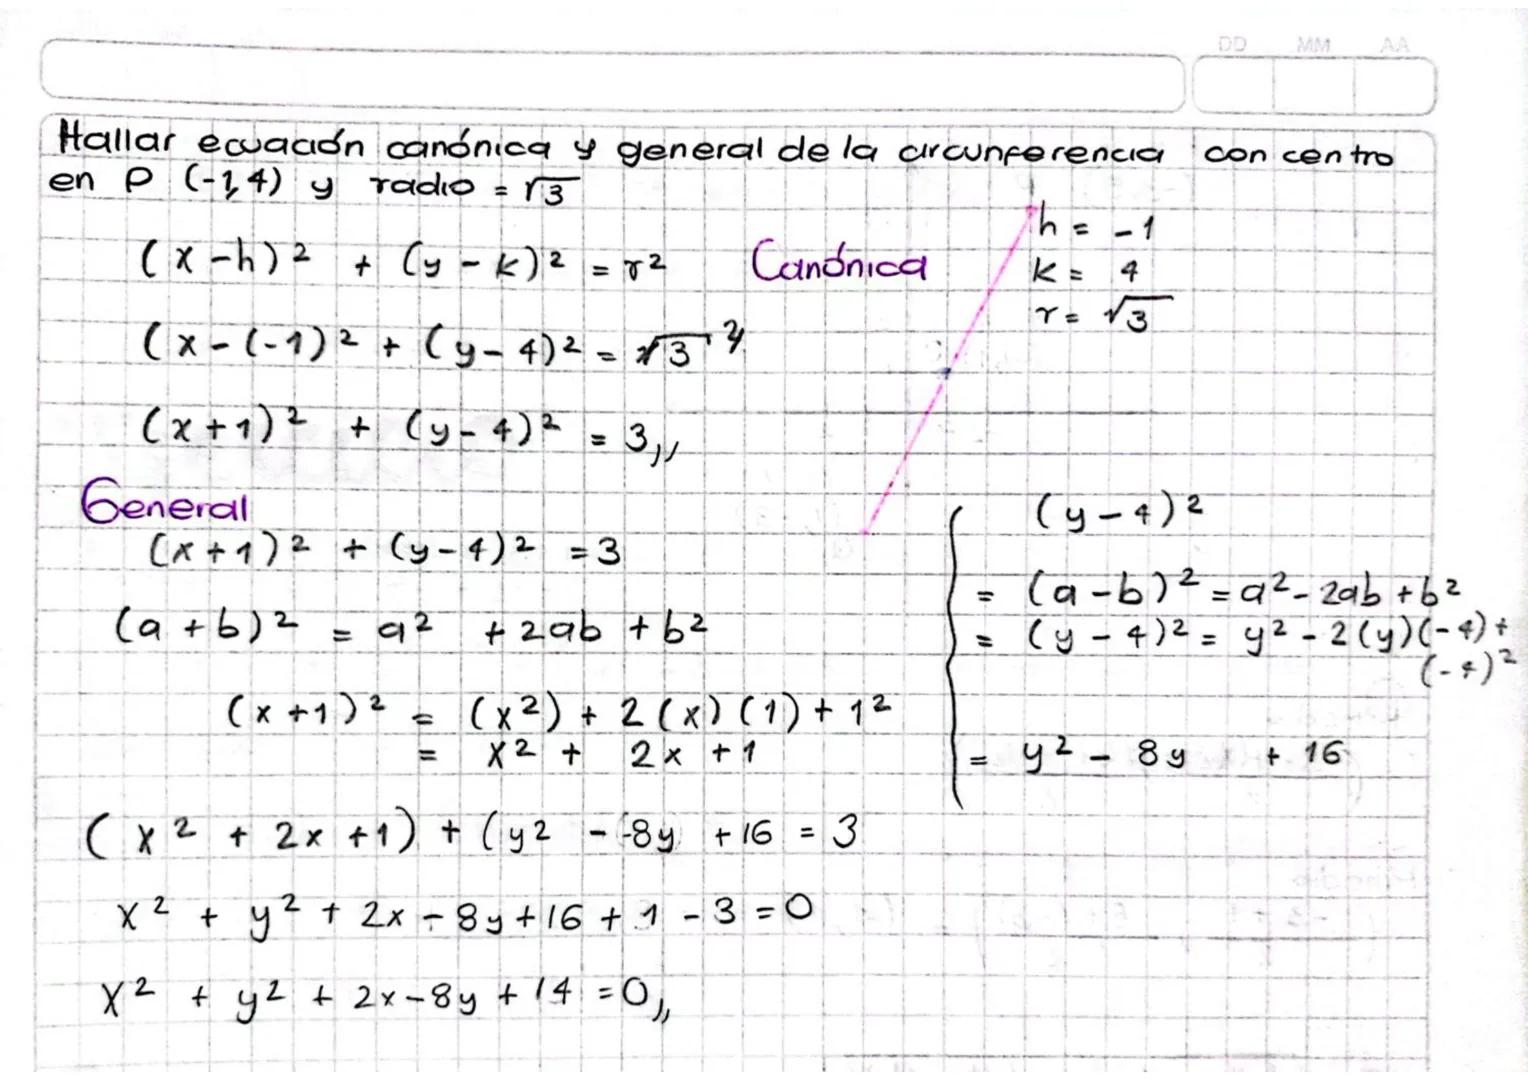 DD MM AA
Hallar ecuación canónica y general de la circunferencia con centro
en P (-1,4) y radio = √3
(x-h)² + (y-k)² = r² Canónica
h = -1
k = 4
r = √3
(x-(-1)² + (y-4)² = √3²
(x+1)² + (y-4)² = 3,,
General
(x+1)² + (y-4)² = 3
(a+b)² = a² + 2ab + b²
(x+1)² = (x²) + 2(x)(1) + 1²
= x² + 2x + 1
(y-4)²
= (a-b)² = a² - 2ab + b²
= (y-4)² = y² - 2(y)(-4) +
(-4)²
= y² - 8y + 16
(x² + 2x + 1) + (y² - -8y + 16 = 3
x² + y² + 2x - 8y + 16 + 1 - 3 = 0
x² + y² + 2x - 8y + 14 = 0,,